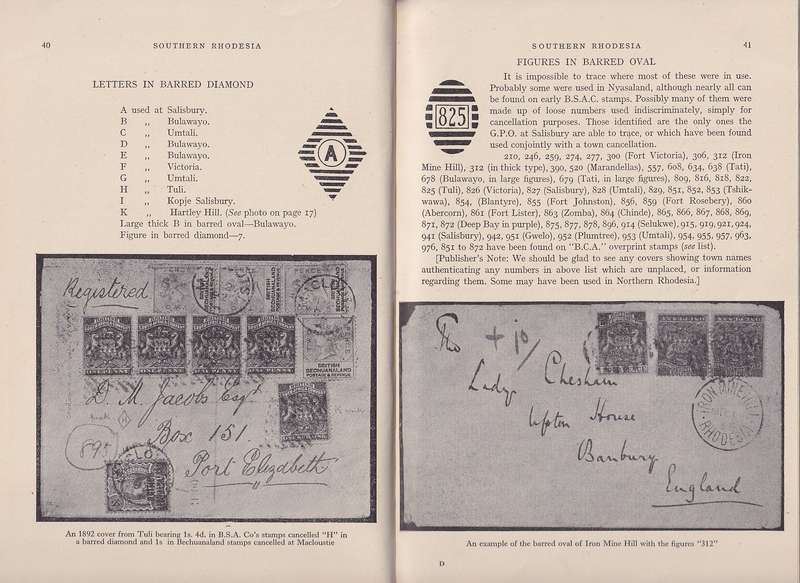 40
SOUTHERN RHODESIA
LETTERS IN BARRED DIAMOND
A used at Salisbury.
B „ Bulawayo.
C „ Umtali.
D „ Bulawayo.
E „ Bulawayo.
F „ Victoria.
G „ Umtali.
H „ Tuli.
I „ Kopje Salisbury.
K „ Hartley Hill. (See photo on page 17)
Large thick B in barred oval—Bulawayo.
Figure in barred diamond—7.
A
Registered
BRITISH
BECHUANALAND
POSTAGE & REVENUE
D. M. Jacobs Esqr
Box 151.
895
Port Elizabeth
An 1892 cover from Tuli bearing 1s. 4d. in B.S.A. Co's stamps cancelled "H" in
a barred diamond and 1s in Bechuanaland stamps cancelled at Macloustie
SOUTHERN RHODESIA
41
FIGURES IN BARRED OVAL
825
It is impossible to trace where most of these were in use.
Probably some were used in Nyasaland, although nearly all can
be found on early B.S.A.C. stamps. Possibly many of them were
made up of loose numbers used indiscriminately, simply for
cancellation purposes. Those identified are the only ones the
G.P.O. at Salisbury are able to trace, or which have been found
used conjointly with a town cancellation.
210, 246, 259, 274, 277, 300 (Fort Victoria), 306, 312 (Iron
Mine Hill), 312 (in thick type), 390, 520 (Marandellas), 557, 608, 634, 638 (Tati),
678 (Bulawayo, in large figures), 679 (Tati, in large figures), 809, 816, 818, 822,
825 (Tuli), 826 (Victoria), 827 (Salisbury), 828 (Umtali), 829, 851, 852, 853 (Tshik-
wawa), 854, (Blantyre), 855 (Fort Johnston), 856, 859 (Fort Rosebery), 860
(Abercorn), 861 (Fort Lister), 863 (Zomba), 864 (Chinde), 865, 866, 867, 868, 869,
871, 872 (Deep Bay in purple), 875, 877, 878, 896, 914 (Selukwe), 915, 919, 921, 924,
941 (Salisbury), 942, 951 (Gwelo), 952 (Plumtree), 953 (Umtali), 954, 955, 957, 963,
976, 851 to 872 have been found on "B.C.A." overprint stamps (see list).
[Publisher's Note: We should be glad to see any covers showing town names
authenticating any numbers in above list which are unplaced, or information
regarding them. Some may have been used in Northern Rhodesia.]
Lady Chesham
Upton House
Banbury
England
IRON MINE HILL
RHODESIA
An example of the barred oval of Iron Mine Hill with the figures "312"
D